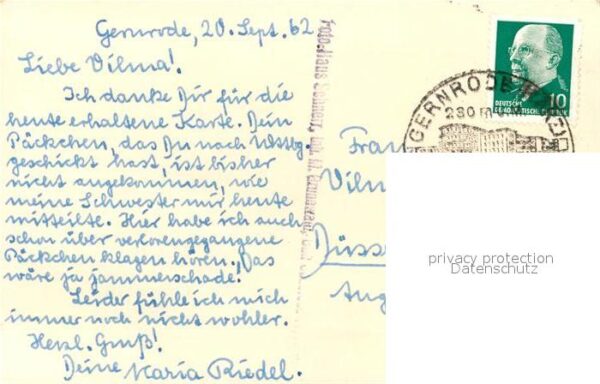 Gernrode, 20. Sept. 62
Liebe Vilma!
Ich danke Dir für die
heute erhaltene Karte. Dein
Päckchen, das Du nach Wittbg.
geschickt hast, ist bisher
nicht angekommen, wie
meine Schwester mir heute
mitteilte. Hier habe ich auch
schon über verlorengegangene
Päckchen klagen hören. Das
wäre ja jammerschade!
Leider fühle ich mich
immer noch nicht wohler.
Herzl. Gruß!
Deine Maria Riedel.
Fotohaus
Frau
Vilm
Düsse
Aug
GERNRODE
DEUTSCHE
DEMOKRATISCHE REPUBLIK
10
privacy protection
Datenschutz